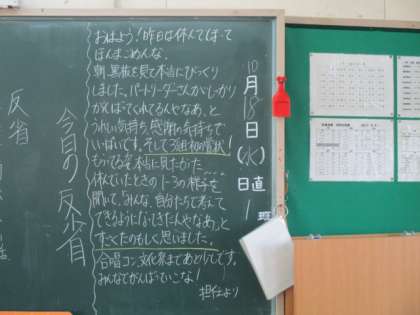 10月18日(水)
日直
1班
おはよう!昨日は休んでしまって
ほんまごめんな。
朝、黒板を見て本当にびっくり
しました。パートリーダーさんがしっかり
がんばってくれてるんやなあ、と
うれしい気持ち、感謝の気持ちで
いっぱいです。そして3組初の賞状!
もらってる姿本当に見たかった
休んでいたときの1-3の様子を
聞いて、みんな、自分たちで考えて
できるようになってきたんやなあ、と
すっごくたのもしく思いました。
合唱コン、文化祭まであと少しです。
みんなでがんばっていこな!
担任より
今日の反省
反省